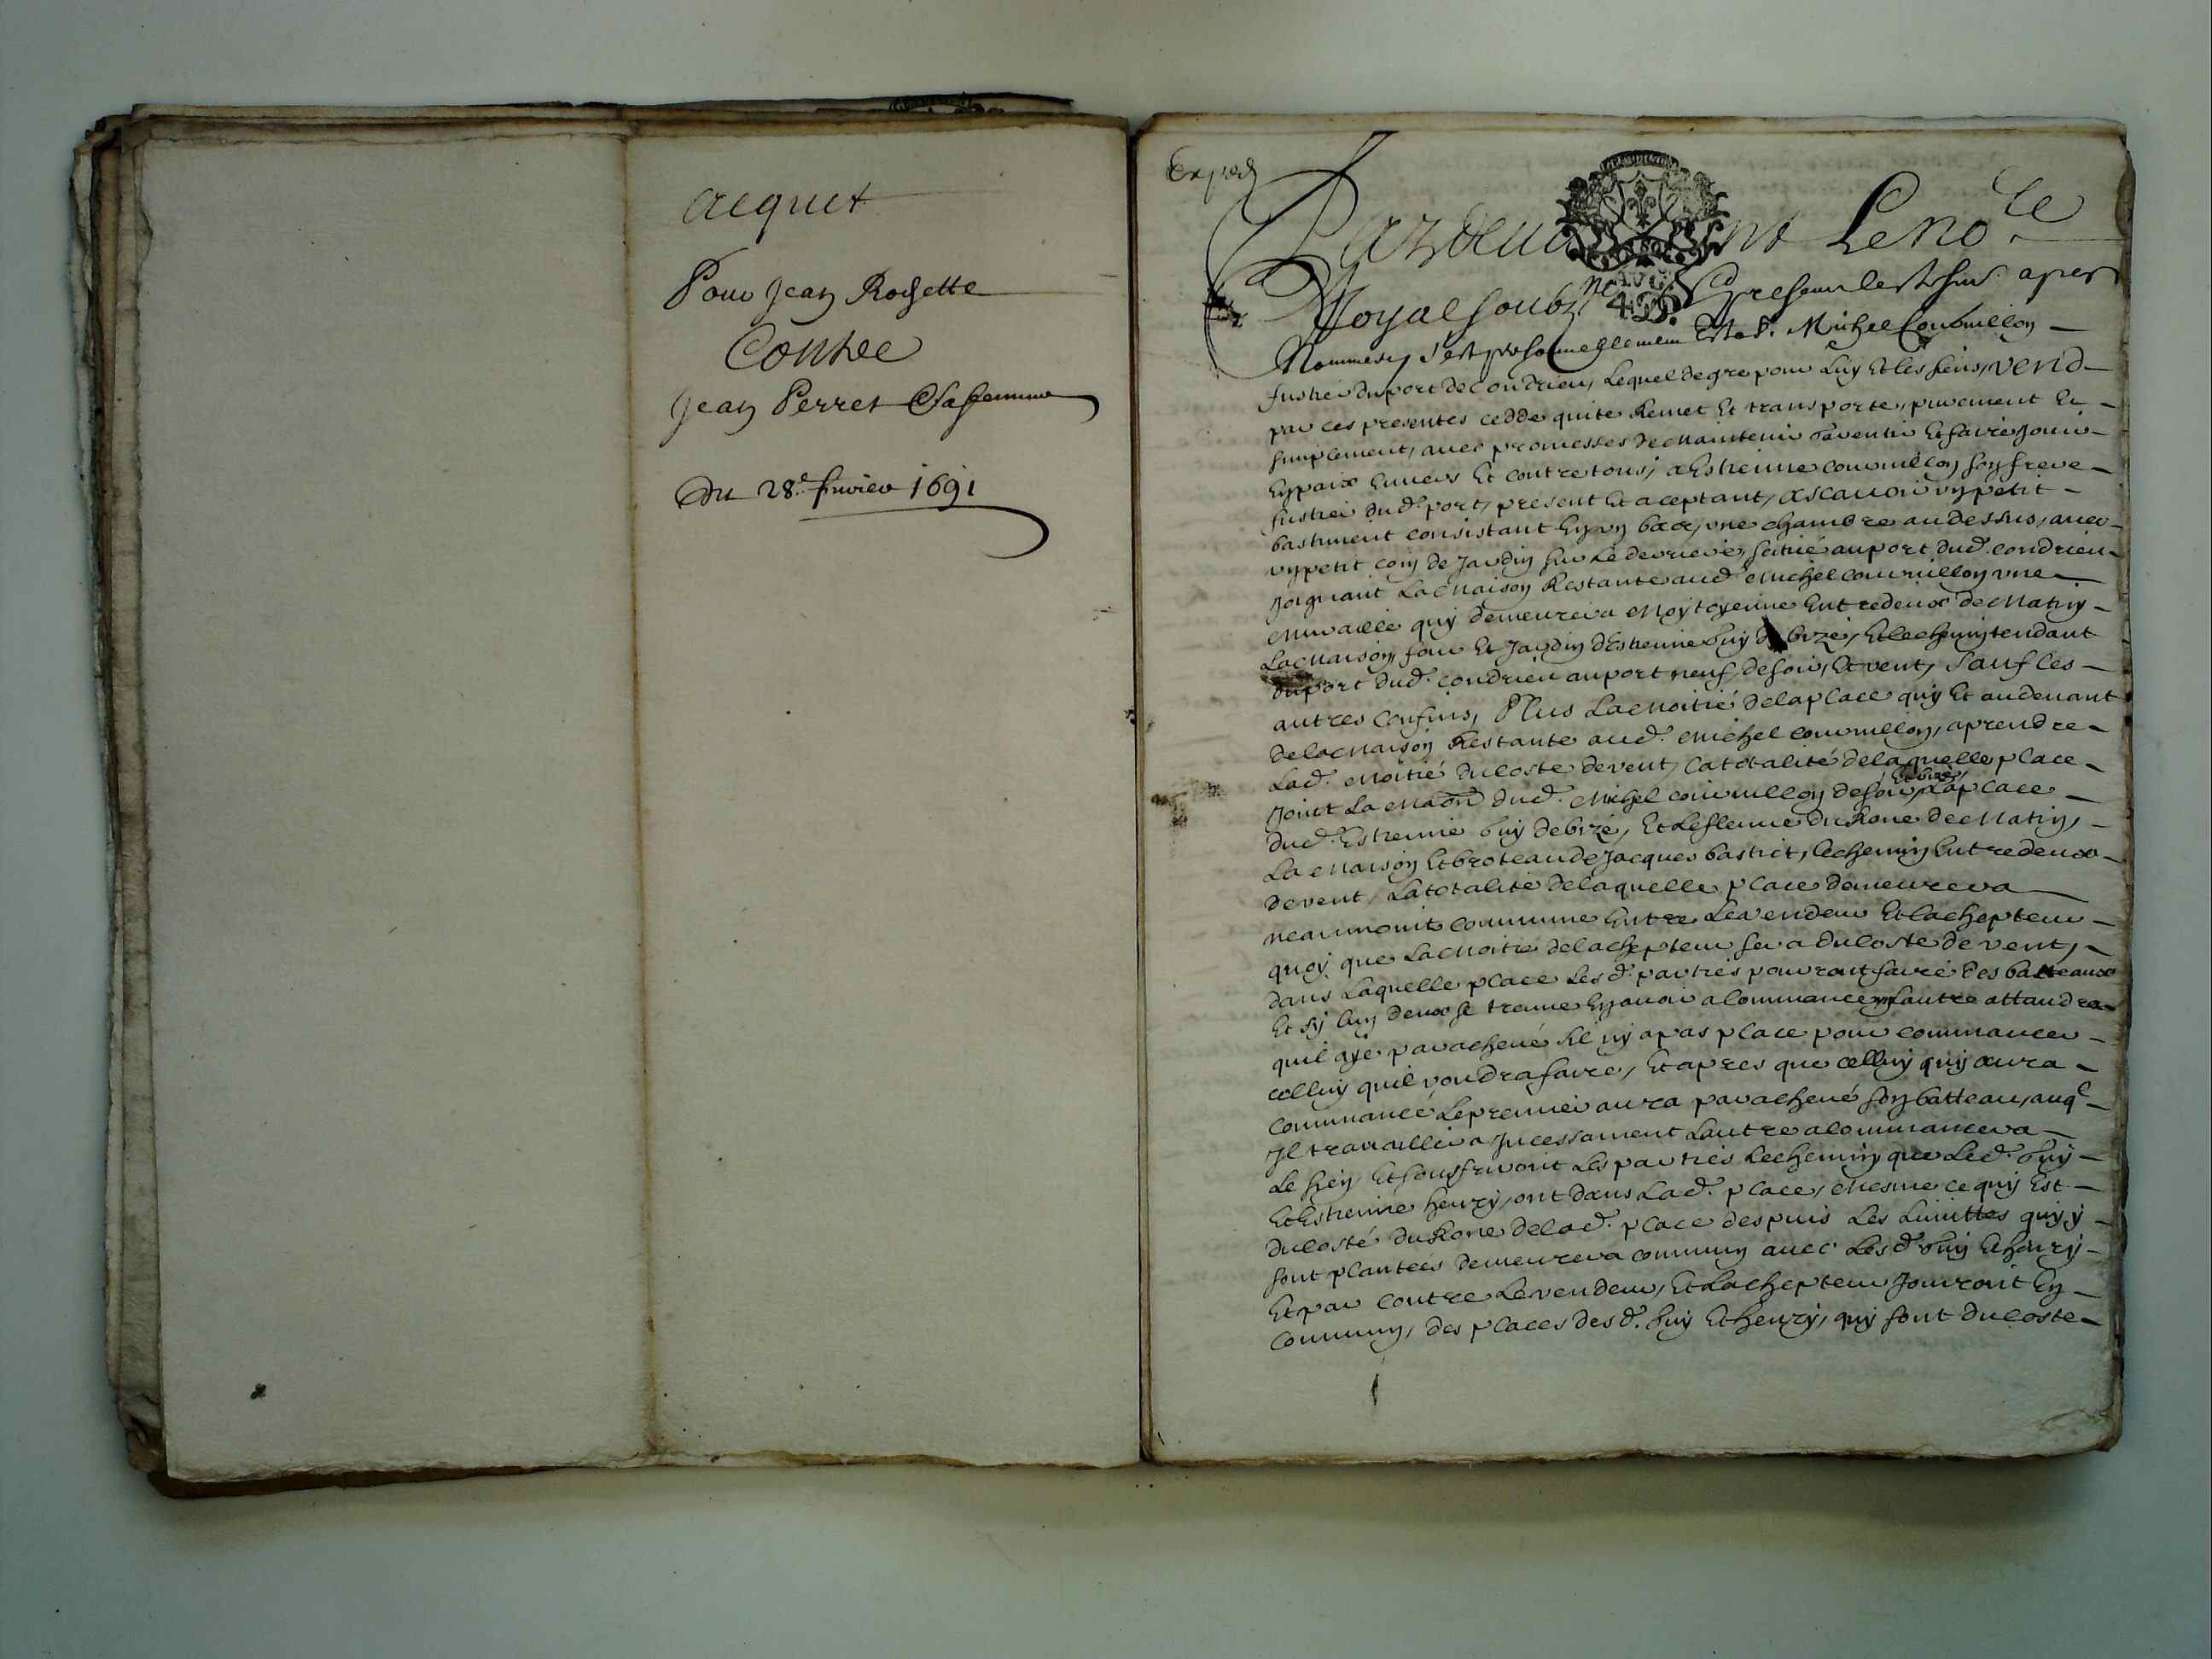 acquet
Pour Jean Rochette
Contre
Jean Perret & sa femme
Du 28e fevrier 1691
Exped
Pardevant Le nore
Royal soubzne presens les tesm apres
Nommes s'est personnellement Esta. Sr. Michel Couvuillon
fustier du port de Condrieu, Lequel de gre pour Luy Et les siens, vend
par ces presentes cedde quite Remet Et transporte, purement Et
simplement, avec promesses de maintenir Garentir Et faire Jouir
En paix Envers Et contre tous, a Estienne couvuillon son frere
fustier dud. port, present Et aceptant, ascavoir un petit
bastiment consistant En un bas, une chambre au dessus, avec
un petit coin de Jardin sur Le derriere, scitué au port dud. condrieu
Joignant La Maison Restante aud. Michel couvuillon une
Muraille quy demeurera Moytoyenne Entredeux de Matin
La Maison, four Et Jardin d'Estienne Guy de bize, Et le chemin tendant
du port dud. condrieu au port neuf, de soir, Et vent, sauf les
autres confins, Plus La Moitié de la place quy Et au devant
de la Maison Restante aud. Michel couvuillon, a prendre
Lad. Moitié du Costé de vent, la totalité de laquelle place
Joint La Maon dud. Michel couvuillon de soir Et bize, La place
dud. Estienne Guy de bize, Et Le fleuve du Rone de Matin,
La Maison Et broteau de Jacques bastiet, le chemin Entredeux
de vent, La totalité de laquelle place demeurera
neanmoins commune Entre Le vendeur Et lachepteur
quoy que La Moitié de lachepteur sera du Costé de vent,
dans Laquelle place Les d. parties pourront faire des batteaux
Et sy L'un deux se treuve En avoir a Commancer, lautre attandra
quil aye parachevé sil ny a pas place pour commancer
celluy quil voudra faire, Et apres que celluy quy aura
commancé Le premier aura parachevé son batteau, auql
Il travaillera Incessament Lautre a Commancera
Le sien, Et souffriront Les parties Le chemin que Led. Guy
Et Estienne henry, ont dans Lad. place, Mesme ce quy Est
du Costé du Rone de lad. place despuis Les Limittes quy y
sont plantées demeurera commun avec Les d. Guy Et henry
Et par contre Le vendeur, Et Lachepteur Jouiront En
Commun, des places des d. Guy Et henry, quy sont du Coste